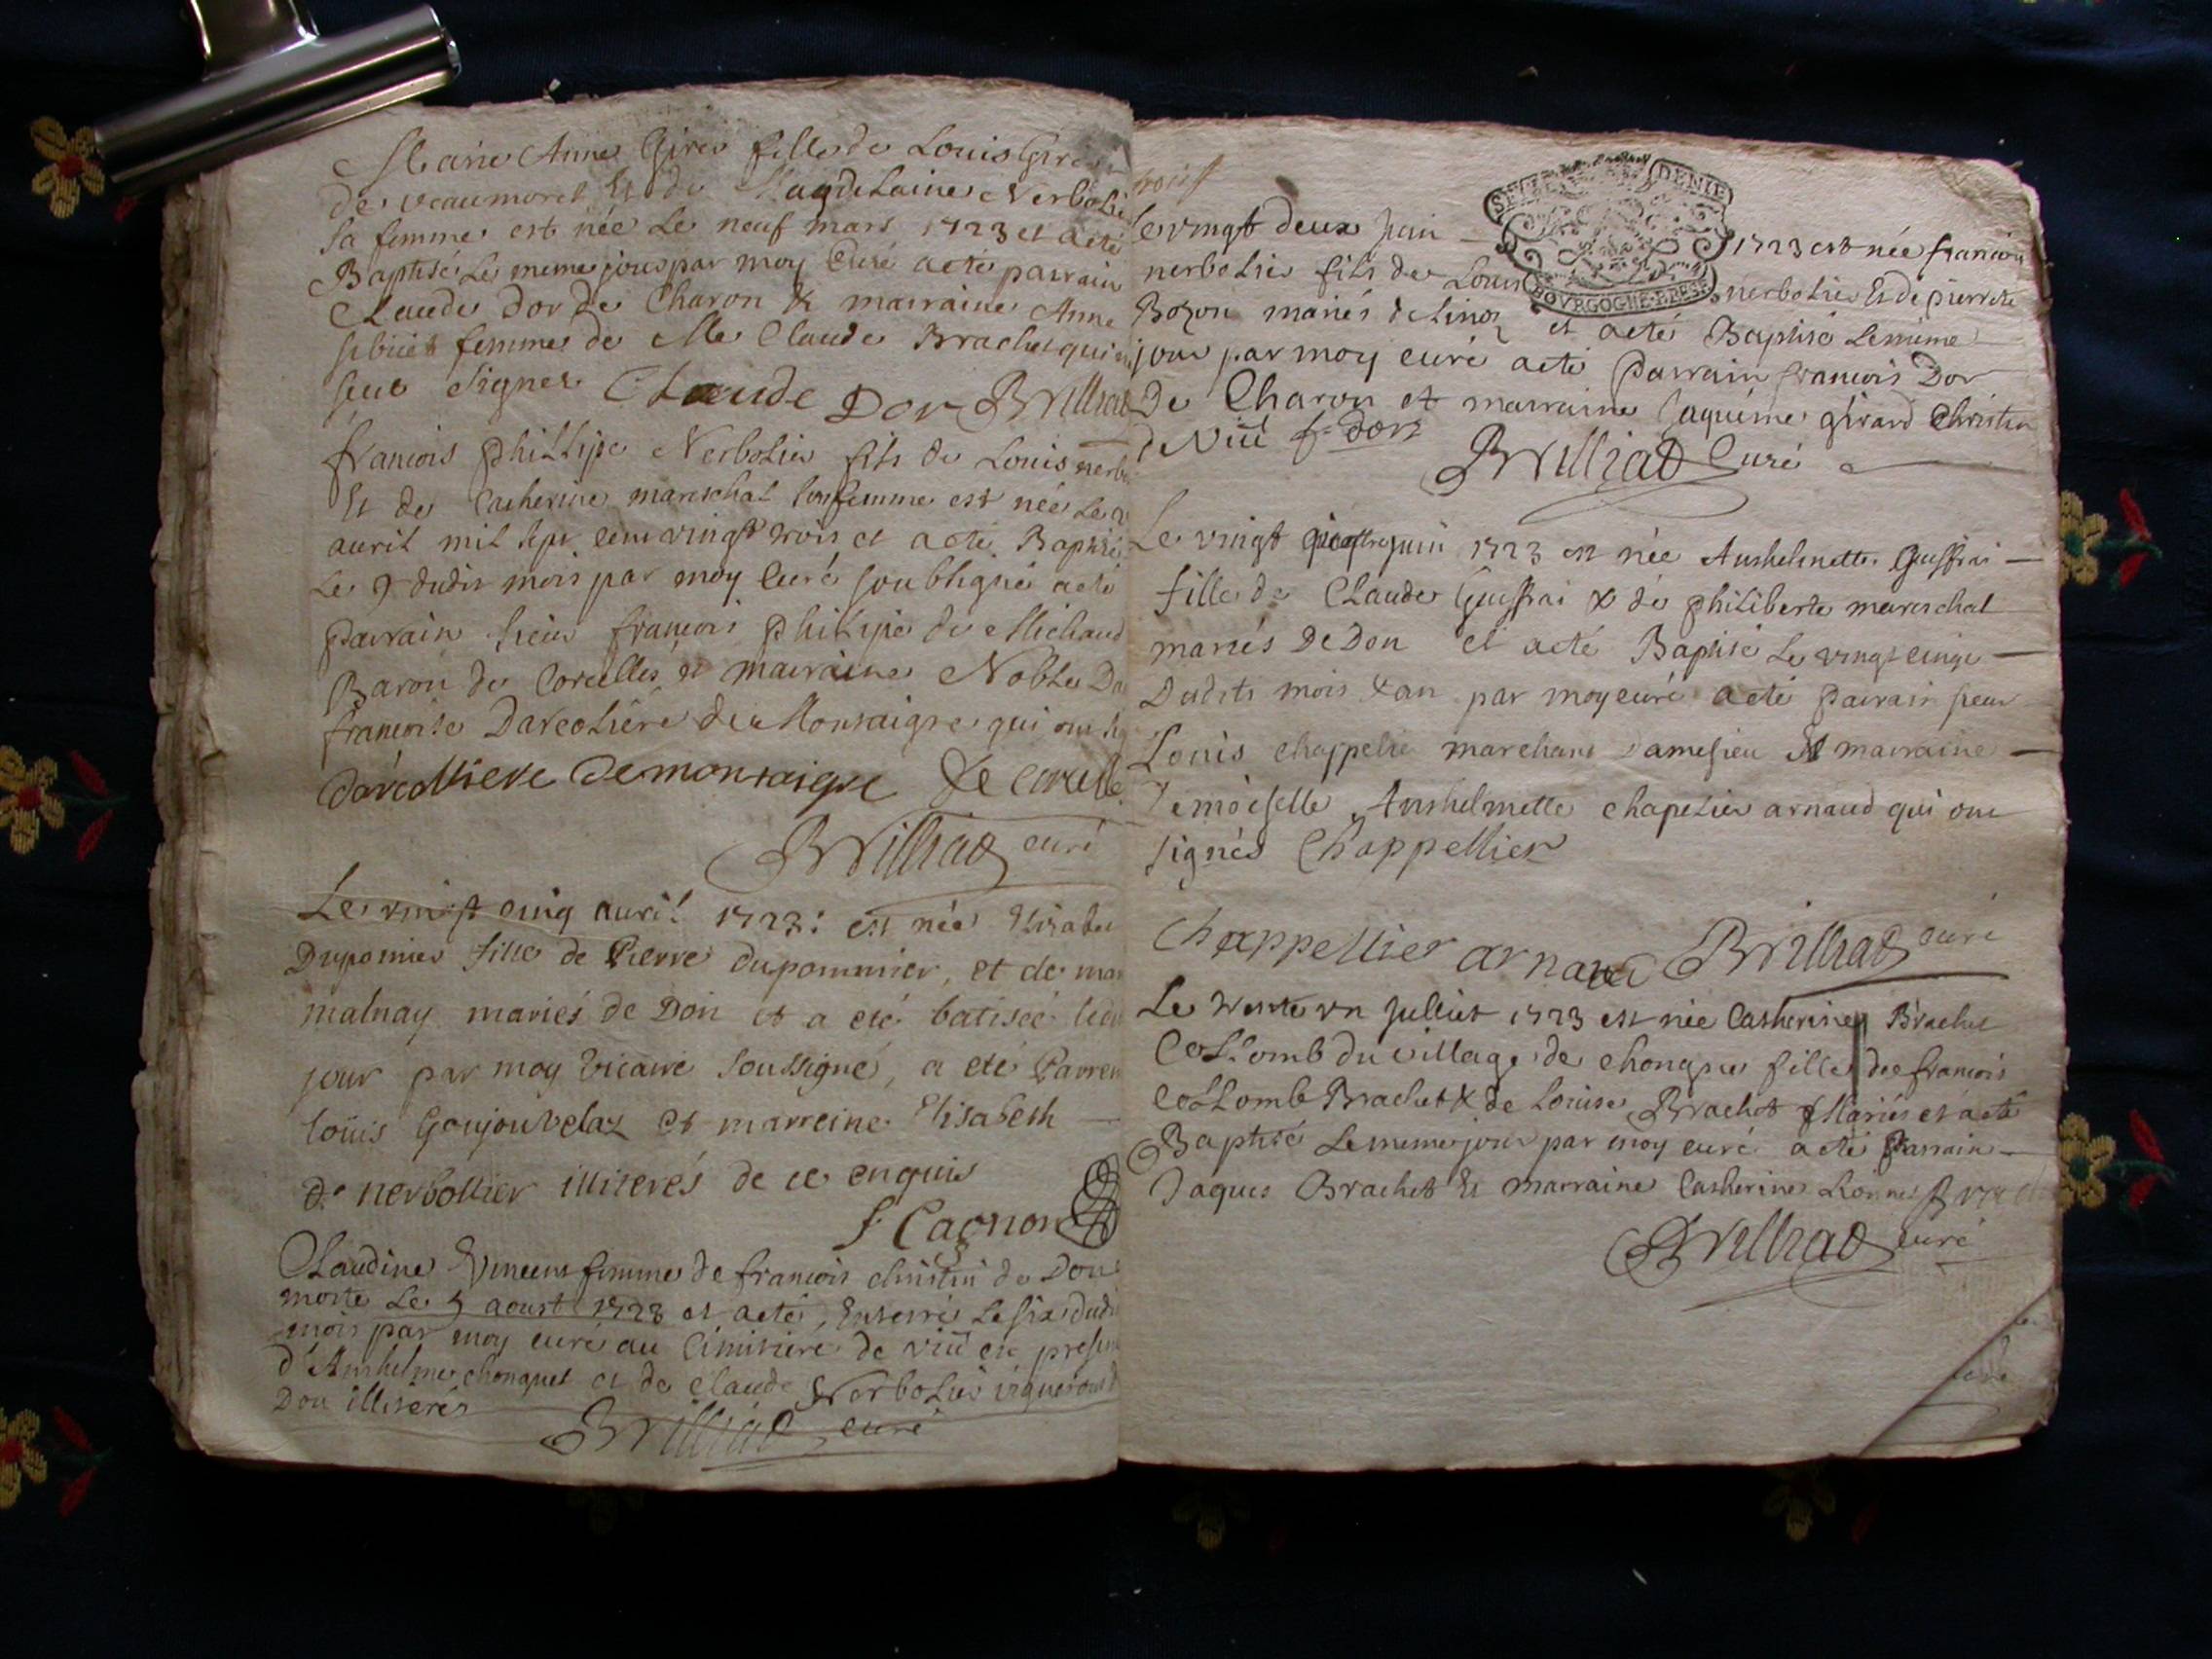 Marie Anne Girer fille de Louis Girer
de veaumoret Et de Magdelaine Nerbolie
sa femme est née Le neuf mars 1723 et a eté
Baptisé Le meme jour par moy Curé a eté parrain
Claude Dor de Charon & marraine Anne
femme de Me Claude Brachet qui
seut signer Claude Dor Brilliad
francois Philipe Nerbolier fils de Louis nerb
Et de Catherine mareschal sa femme est née Le
auril mil sept cent vingt trois et a eté Baptisé
Le 9 dudit mois par moy Curé soubsigné a eté
parrain sieur francois Philipe de Michaud
Baron de Corcelles et marraine Noble Da
francoise Darcoliere de Montaigre qui ont sig
darcolliere de montaigre De Corcelle
Brilliad curé
Le vingt cinq auril 1723: est née Elizabet
Dupomier fille de Pierre dupommier, et de mar
malnay mariés de Don et a eté batisée
jour par moy vicaire soussigné, a eté Parren
loüis Goujon velaz et marreine Elisabeth
de nerbollier illiterés de ce enquis
f. Cagnon
Claudine Vincent femme de francois christin de Don
morte Le 5 aoust 1723 et a eté Enterré Le six dudi
mois par moy curé au Cimitiere de viü en presen
d'Anthelme chonquet et de claude Nerbolier vigneron d
Don illiterés
Brilliad curé
trois s
SEPT DENIE
BOVRGOGNE BRESSE
Le vingt deux juin 1723 est née francois
nerbolier fils de Louis nerbolier Et de pierrete
Bozon mariés de Linoz et a eté Baptisé Le meme
jour par moy curé a eté parrain francois Dor
De Charon et marraine Jaqueme girard Christin
de Viü f. dorz
Brilliad Curé
Le vingt quattre juin 1723 est née Anthelmette Guiffrai
fille de Claude Guiffrai & de philiberte mareschal
mariés De Don et a eté Baptisé Le vingt cinq
Dudits mois & an par moy curé a eté parrain sieur
Louis chappelie marchant Et marraine
Demoiselle Anthelmette chapelier arnaud qui ont
signés Chappellier
Chappellier arnaud Brilliad curé
Le trente vn Julliet 1723 est née Catherine Brachet
Collomb du village de chongnes fille de francois
Collomb Brachet & de Louise Brachet Mariés et a eté
Baptisé Le meme jour par moy curé a eté Parrain
Jaques Brachet Et marraine Catherine
Brilliad curé